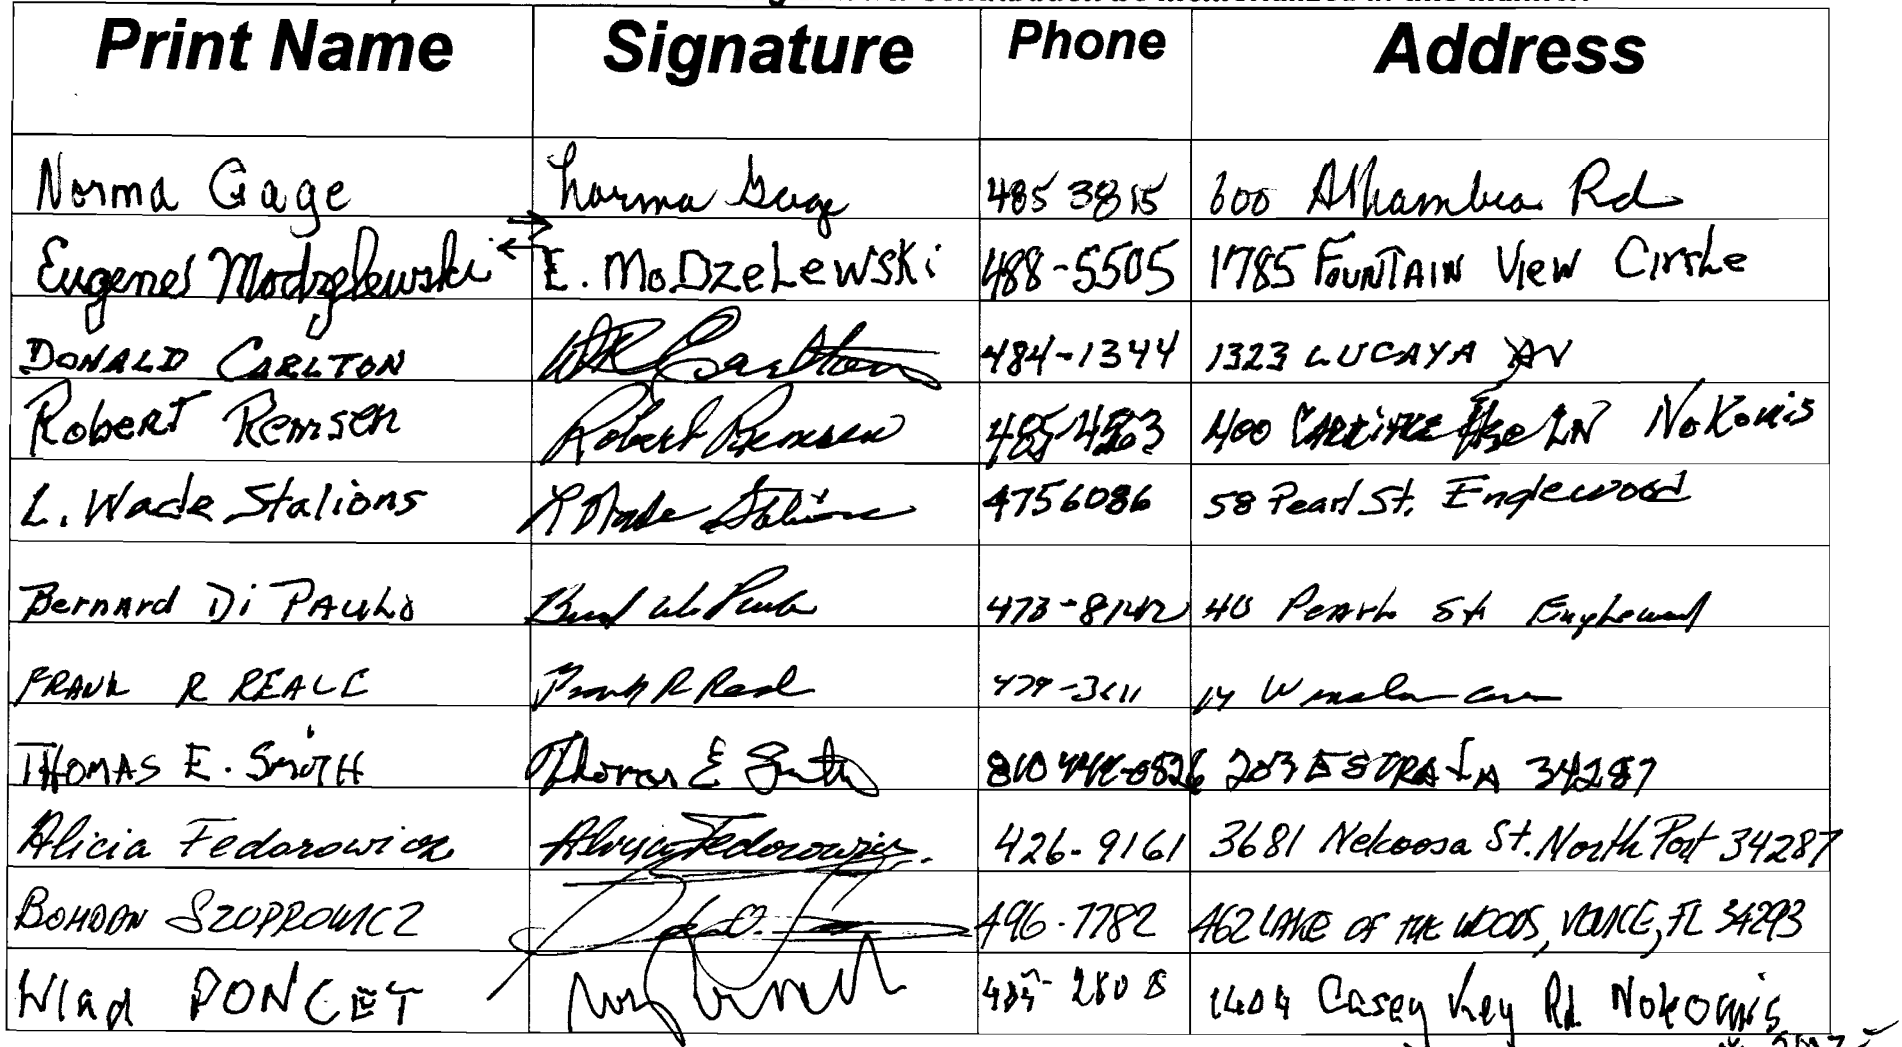 Print Name Signature Phone Address
Norma Gage Norma Gage 485 3815 600 Alhambra Rd
Eugenes Modzelewski E. MoDzeLewSki 488-5505 1785 FOUNTAIN VIEW Circle
DONALD CARLTON Carlton 484-1344 1323 LUCAYA AV
Robert Remsen Robert Remsen 400 Hse LN Nokomis
L. Wade Stalions L Wade Stalions 4756086 58 Pearl St. Englewood
Bernard Di PAULO 40 Pearl St Englewood
FRANK R REALE Frank R Reale 14
THOMAS E. SmiTH Thomas E Smith 203 ESTRA LA 34287
Alicia Fedorowicz Alicja Fedorowicz. 426-9161 3681 Nekoosa St. North Port 34287
BOHDAN SZUPROWICZ 496-7782 462 LAKE OF THE WOODS, VENICE, FL 34293
Wlad PONCET 1404 Casey Key Rd Nokomis